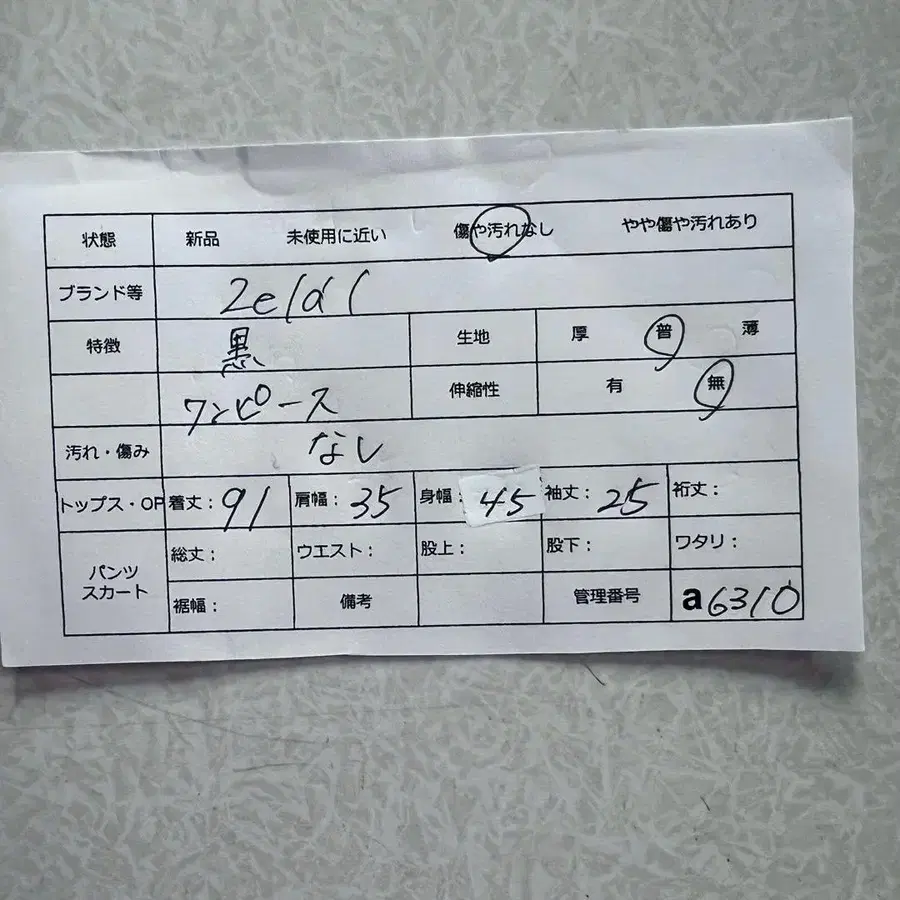 状態 新品 未使用に近い 傷や汚れなし やや傷や汚れあり
ブランド等 Zeldl
特徴 黒 生地 厚 普 薄
ワンピース 伸縮性 有 無
汚れ・傷み なし
トップス・OP 着丈：91 肩幅：35 身幅：45 袖丈：25 裄丈：
パンツ
スカート
総丈： ウエスト： 股上： 股下： ワタリ：
裾幅： 備考 管理番号 a6310